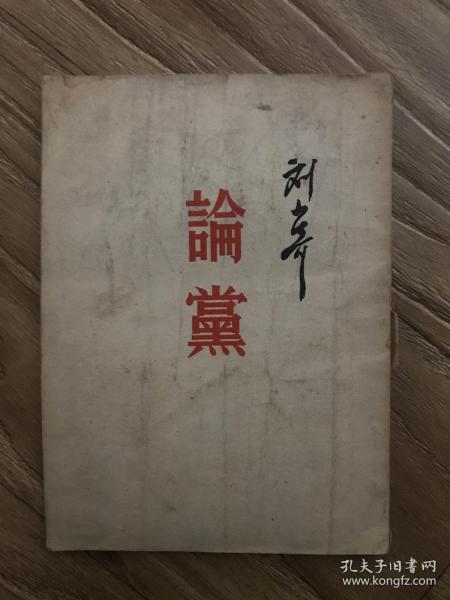 刘少奇
論黨
孔夫子旧书网
www.kongfz.com